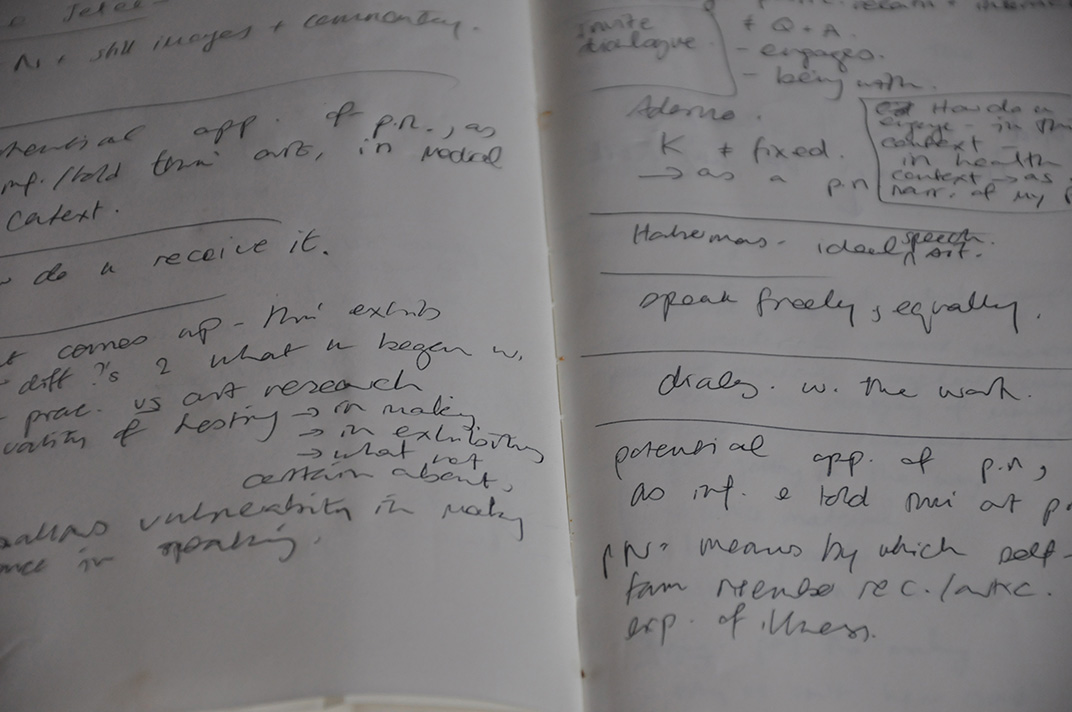 still images + commentary.
app. of p.n., as
/told thru' art, in medical
context.
do u receive it.
comes up - thru' exhib
diff ?'s 2 what u began w.
prac. vs art research
of testing → in making
→ in exhibiting
→ what not
certain about,
vulnerability in making
in speaking.
Invite
dialogue
+ Q + A.
- engages.
- being with.
Adorno.
K ≠ fixed.
→ as a pn
How do u
engage - in this
context -
in health
context → as
narr. of my
Habermas - ideal speech
sit.
speak freely, equally.
dialog. w. the work.
potential app. of p.n,
as inf. e told thru' art
PN = means by which self-
fam member rec./artic.
exp. of illness.